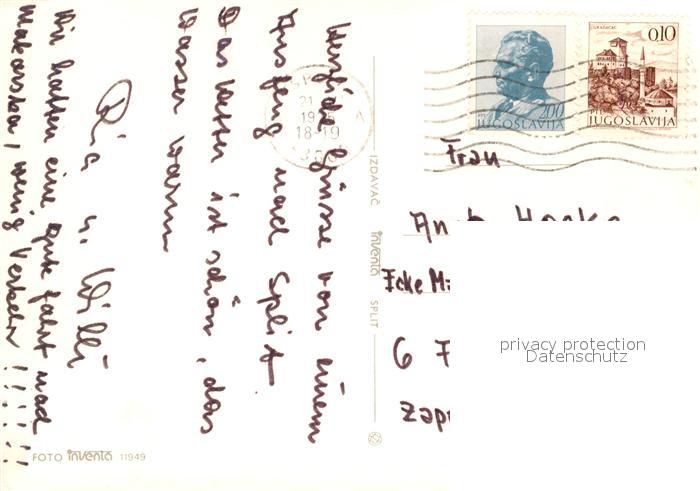 Herzliche Grüsse von einem
Ausflug nach Split
Das Wetter ist schön, das
Wasser warm
Ria u. Willi
Wir hatten eine gute Fahrt nach
Makarska, wenig Verkehr !!!!!!!
FOTO inventa 11949
IZDAVAČ inventa SPLIT
2,00
JUGOSLAVIJA
POČITELJ
0,10
JUGOSLAVIJA
18-19
Frau
6 F
privacy protection
Datenschutz